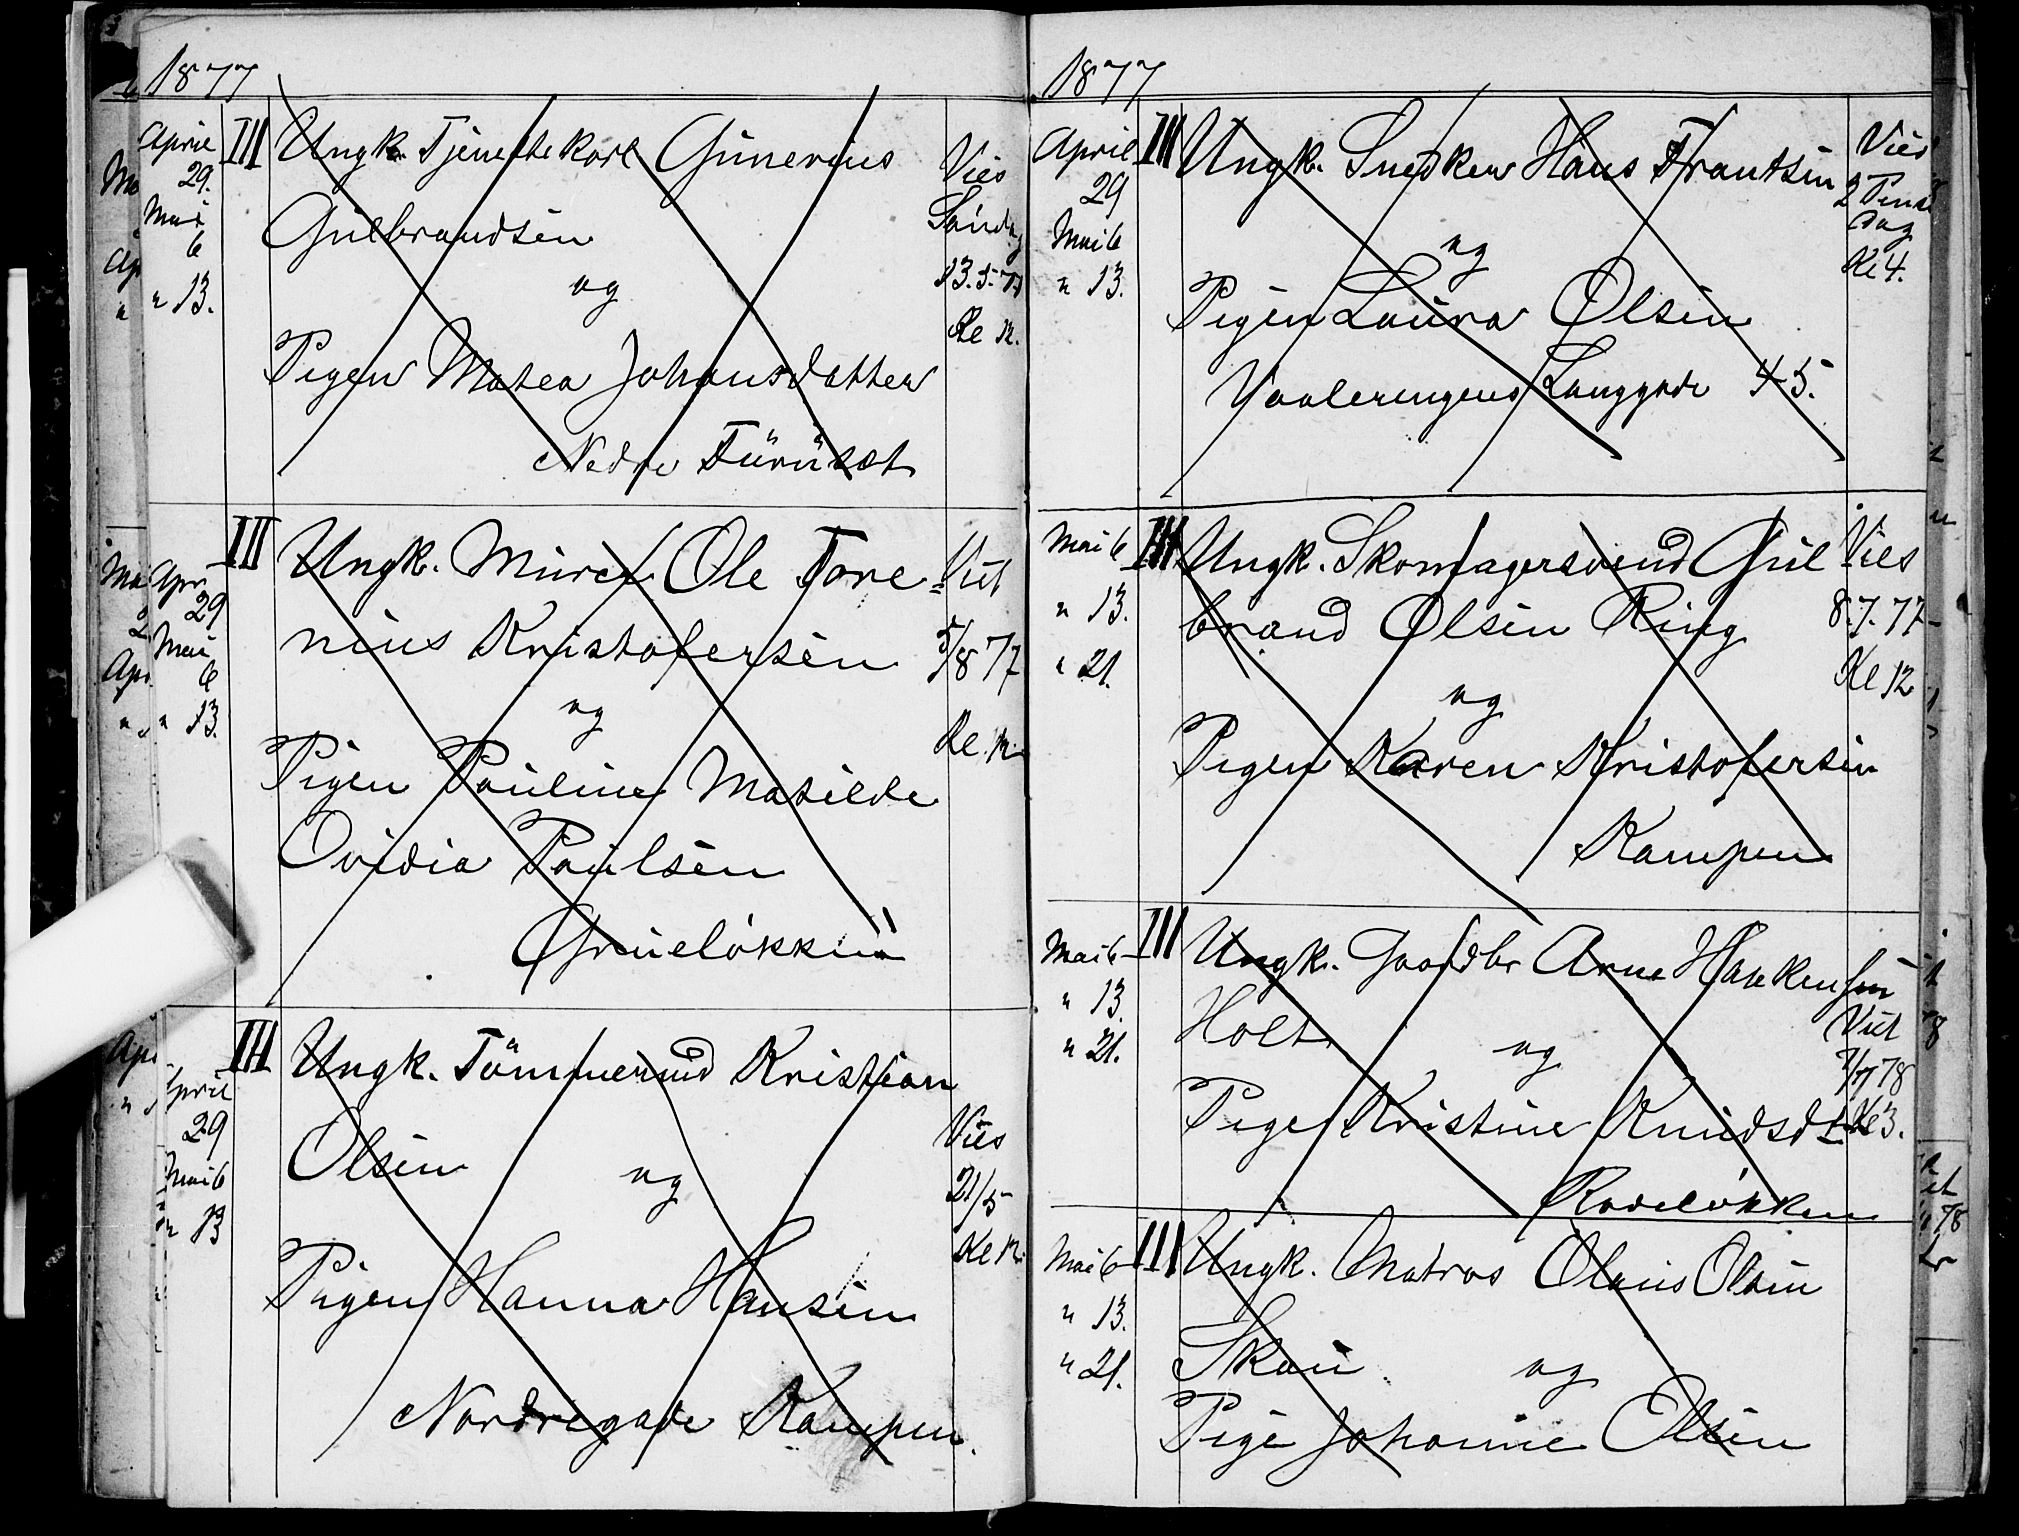 1877
April
29.
Mai
6
" 13.
III
Ungk. Tjenestekarl Gunerius
Gulbrandsen
og
Pigen Matea Johansdatter
Nedre Furuset
Vies
Søndag
13.5.77
Kl 12.
Apr
29
Mai
6
" 13.
III
Ungk. Murer Ole Tore
nius Kristofersen
og
Pigen Pauline Matilde
Ovidia Paulsen
Grueløkken
Viet
5/8 77
Kl. 12.
April
29
Mai 6
" 13
III
Ungk. Tømmermd Kristian
Olsen
og
Pigen Hanna Hansen
Nordregade Kampen.
Vies
21/5
Kl 12.
1877
April
29
Mai 6
" 13.
III
Ungk. Snedker Hans Frantsen
og
Pigen Laura Olsen
Vaalerengens Langgade 45.
Vies
2 Pinse
dag
Kl 4.
Mai 6
" 13.
" 21.
III
Ungk. Skomagersvend Gul
brand Olsen Ring
og
Pigen Karen Kristofersen
Kampen
Vies
8.7.77
Kl 12
Mai 6
" 13.
" 21.
III
Ungk. Gaardbr Arne Haakensen
Holt
og
Pige Kristine Knudsdt
Rodeløkken
Viet
78
Kl 3.
Mai 6
" 13.
" 21.
III
Ungk. Matros Olaus Olsen
Skau
og
Pige Johanne Olsen